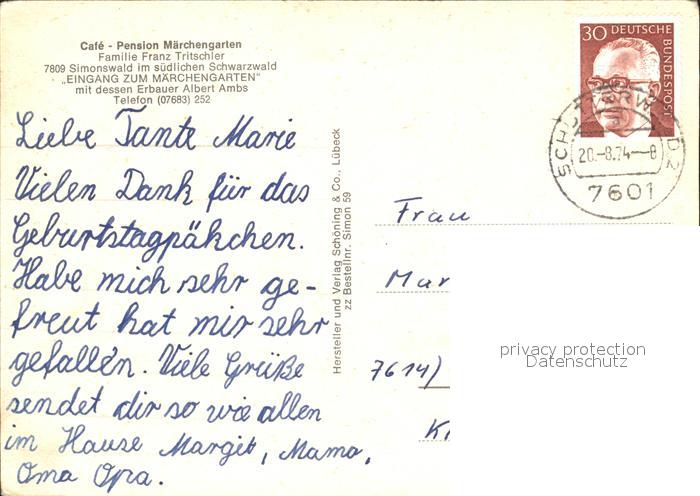 Café - Pension Märchengarten
Familie Franz Tritschler
7809 Simonswald im südlichen Schwarzwald
„EINGANG ZUM MÄRCHENGARTEN"
mit dessen Erbauer Albert Ambs
Telefon (07683) 252
30 DEUTSCHE
BUNDESPOST
20.-8.74--8
7601
Liebe Tante Marie
Vielen Dank für das
Geburtstagpäkchen.
Habe mich sehr ge-
freut hat mir sehr
gefallen. Viele Grüße
sendet dir so wie allen
im Hause Margit, Mama,
Oma Opa.
Hersteller und Verlag Schöning & Co., Lübeck
zz Bestellnr. Simon 59
Frau
Mar
7614)
privacy protection
Datenschutz